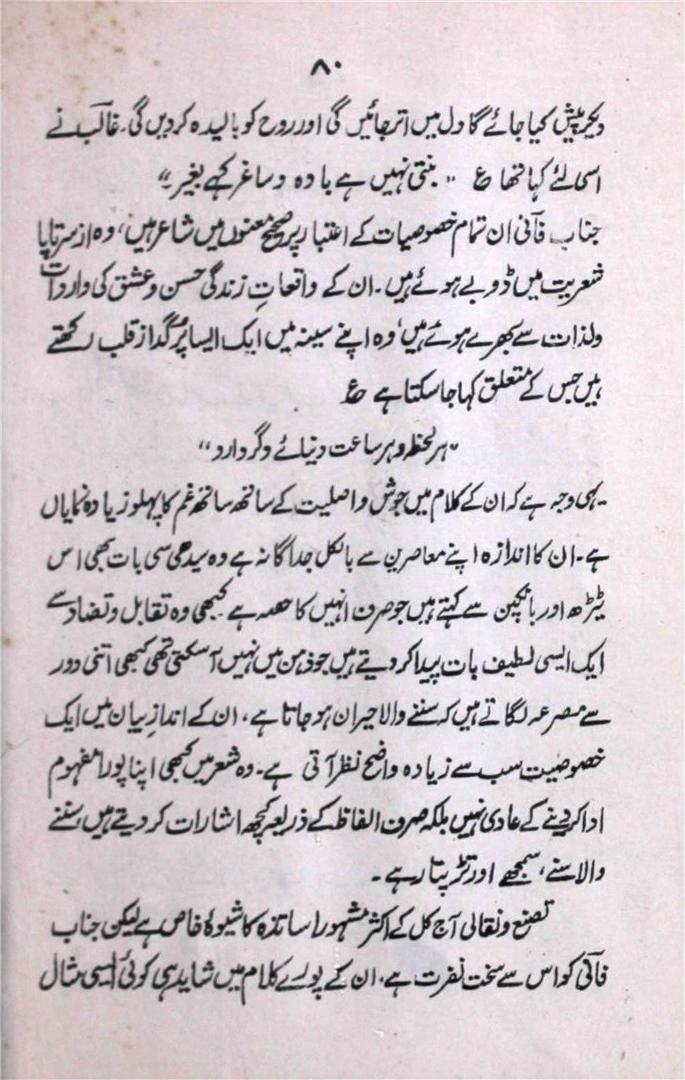 ۸۰
دیکر پیش کیا جائے گا دل میں اتر جائیں گی اور روح کو بالیدہ کر دیں گی۔ غالب نے
اسی لئے کہا تھا ع "بنتی نہیں ہے بادہ و ساغر کہے بغیر"
جناب فانی ان تمام خصوصیات کے اعتبار پر صحیح معنوں میں شاعر ہیں، وہ از سرتاپا
شعریت میں ڈوبے ہوئے ہیں۔ ان کے واقعاتِ زندگی حسن و عشق کی واردات
ولذات سے بھرے ہوئے ہیں، وہ اپنے سینہ میں ایک ایسا پُر گداز قلب رکھتے
ہیں جس کے متعلق کہا جا سکتا ہے ع
"ہر لحظہ و ہر ساعت دنیائے دگر دارد"
یہی وجہ ہے کہ ان کے کلام میں جوش و اصلیت کے ساتھ ساتھ غم کا پہلو زیادہ نمایاں
ہے۔ ان کا اندازہ اپنے معاصرین سے بالکل جداگانہ ہے وہ سیدھی سی بات بھی اس
ٹیڑھ اور بانکپن سے کہتے ہیں جو صرف انہیں کا حصہ ہے کبھی وہ تقابل و تضاد سے
ایک ایسی لطیف بات پیدا کر دیتے ہیں جو ذہن میں نہیں آ سکتی تھی کبھی اتنی دور
سے مصرعہ لگاتے ہیں کہ سننے والا حیران ہو جاتا ہے، ان کے اندازِ بیان میں ایک
خصوصیت سب سے زیادہ واضح نظر آتی ہے۔ وہ شعر میں کبھی اپنا پورا مفہوم
ادا کر دینے کے عادی نہیں بلکہ صرف الفاظ کے ذریعہ کچھ اشارات کر دیتے ہیں، سننے
والا سنے، سمجھے اور تڑپتا رہے۔
تصنع و نقالی آج کل کے اکثر مشہور اساتذہ کا شیوۂ خاص ہے لیکن جناب
فانی کو اس سے سخت نفرت ہے، ان کے پورے کلام میں شاید ہی کوئی ایسی مثال